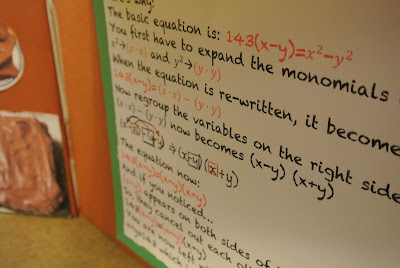 why:
The basic equation is: 143(x-y)=x²-y²
You first have to expand the monomials
x²→(x·x) and y²→(y·y)
When the equation is re-written, it become
143(x-y)=(x·x) - (y·y)
Now regroup the variables on the right side
(x·x) - (y·y) now becomes (x-y) (x+y)
⇒ (x-y) (x+y)
The equation now:
143(x-y)=(x-y)(x+y)
And if you noticed...
appears on both sides of
cancel out each
(x+y)
You are now left